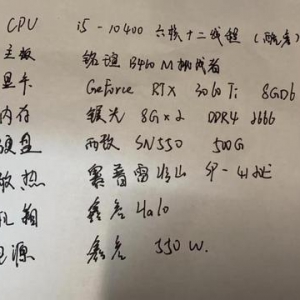 CPU i5-10400 六核十二线程（酷睿）
主板 铭瑄 B460M 挑战者
显卡 GeForce RTX 3060Ti 8GD6
内存 镁光 8G×2 DDR4 2666
硬盘 西数 SN550 500G
散热 赛普雷
机箱 鑫谷 Halo
电源 鑫谷 550W.